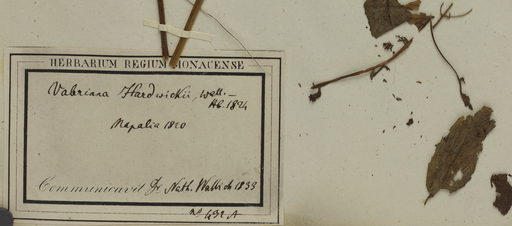 HERBARIUM REGIUM MONACENSE
Valeriana Hardwickii, Wall. –
Hb. 1824
Napalia 1820
Communicavit Dr Nath. Wallich 1833
no 432 A